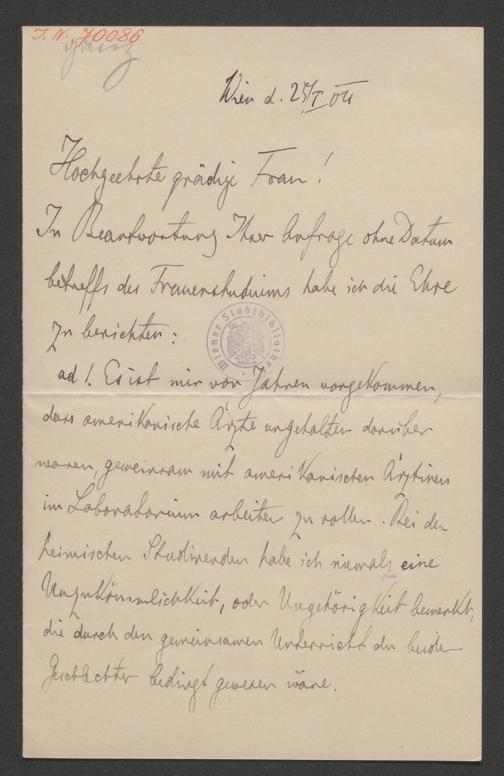 I. N. 70086
Wien d. 25/I 04
Hochgeehrte gnädige Frau!
In Beantwortung Ihrer Anfrage ohne Datum
betreffs des Frauenstudiums habe ich die Ehre
zu berichten:
Wiener Stadtbibliothek
ad 1. Es ist mir vor Jahren vorgekommen,
dass amerikanische Ärzte ungehalten darüber
waren, gemeinsam mit amerikanischen Ärztinen
im Laboratorium arbeiten zu sollen. Bei den
heimischen Studirenden habe ich niemals eine
Unzukömmlichkeit, oder Ungehörigkeit bemerkt,
die durch den gemeinsamen Unterricht der beiden
Geschlechter bedingt gewesen wäre.